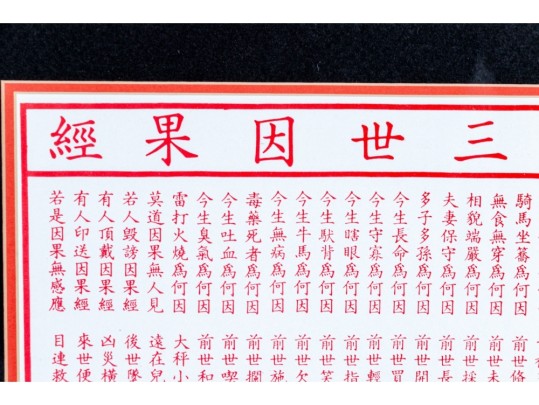 三世因果經
騎馬坐轎爲何因 前世修
無食無穿爲何因 前世未
相貌端嚴爲何因 前世採
夫妻保守爲何因 前世長
多子多孫爲何因 前世開
今生長命爲何因 前世買
今生守寡爲何因 前世輕
今生瞎眼爲何因 前世指
今生馱背爲何因 前世笑
今生牛馬爲何因 前世欠
今生無病爲何因 前世施
毒藥死者爲何因 前世攔
今生吐血爲何因 前世喫
今生臭氣爲何因 前世和
雷打火燒爲何因 大秤小
莫道因果無人見 遠在兒
若人毀謗因果經 後世墮
有人頂戴因果經 凶災橫
有人印送因果經 來世便
若是因果無感應 目連救